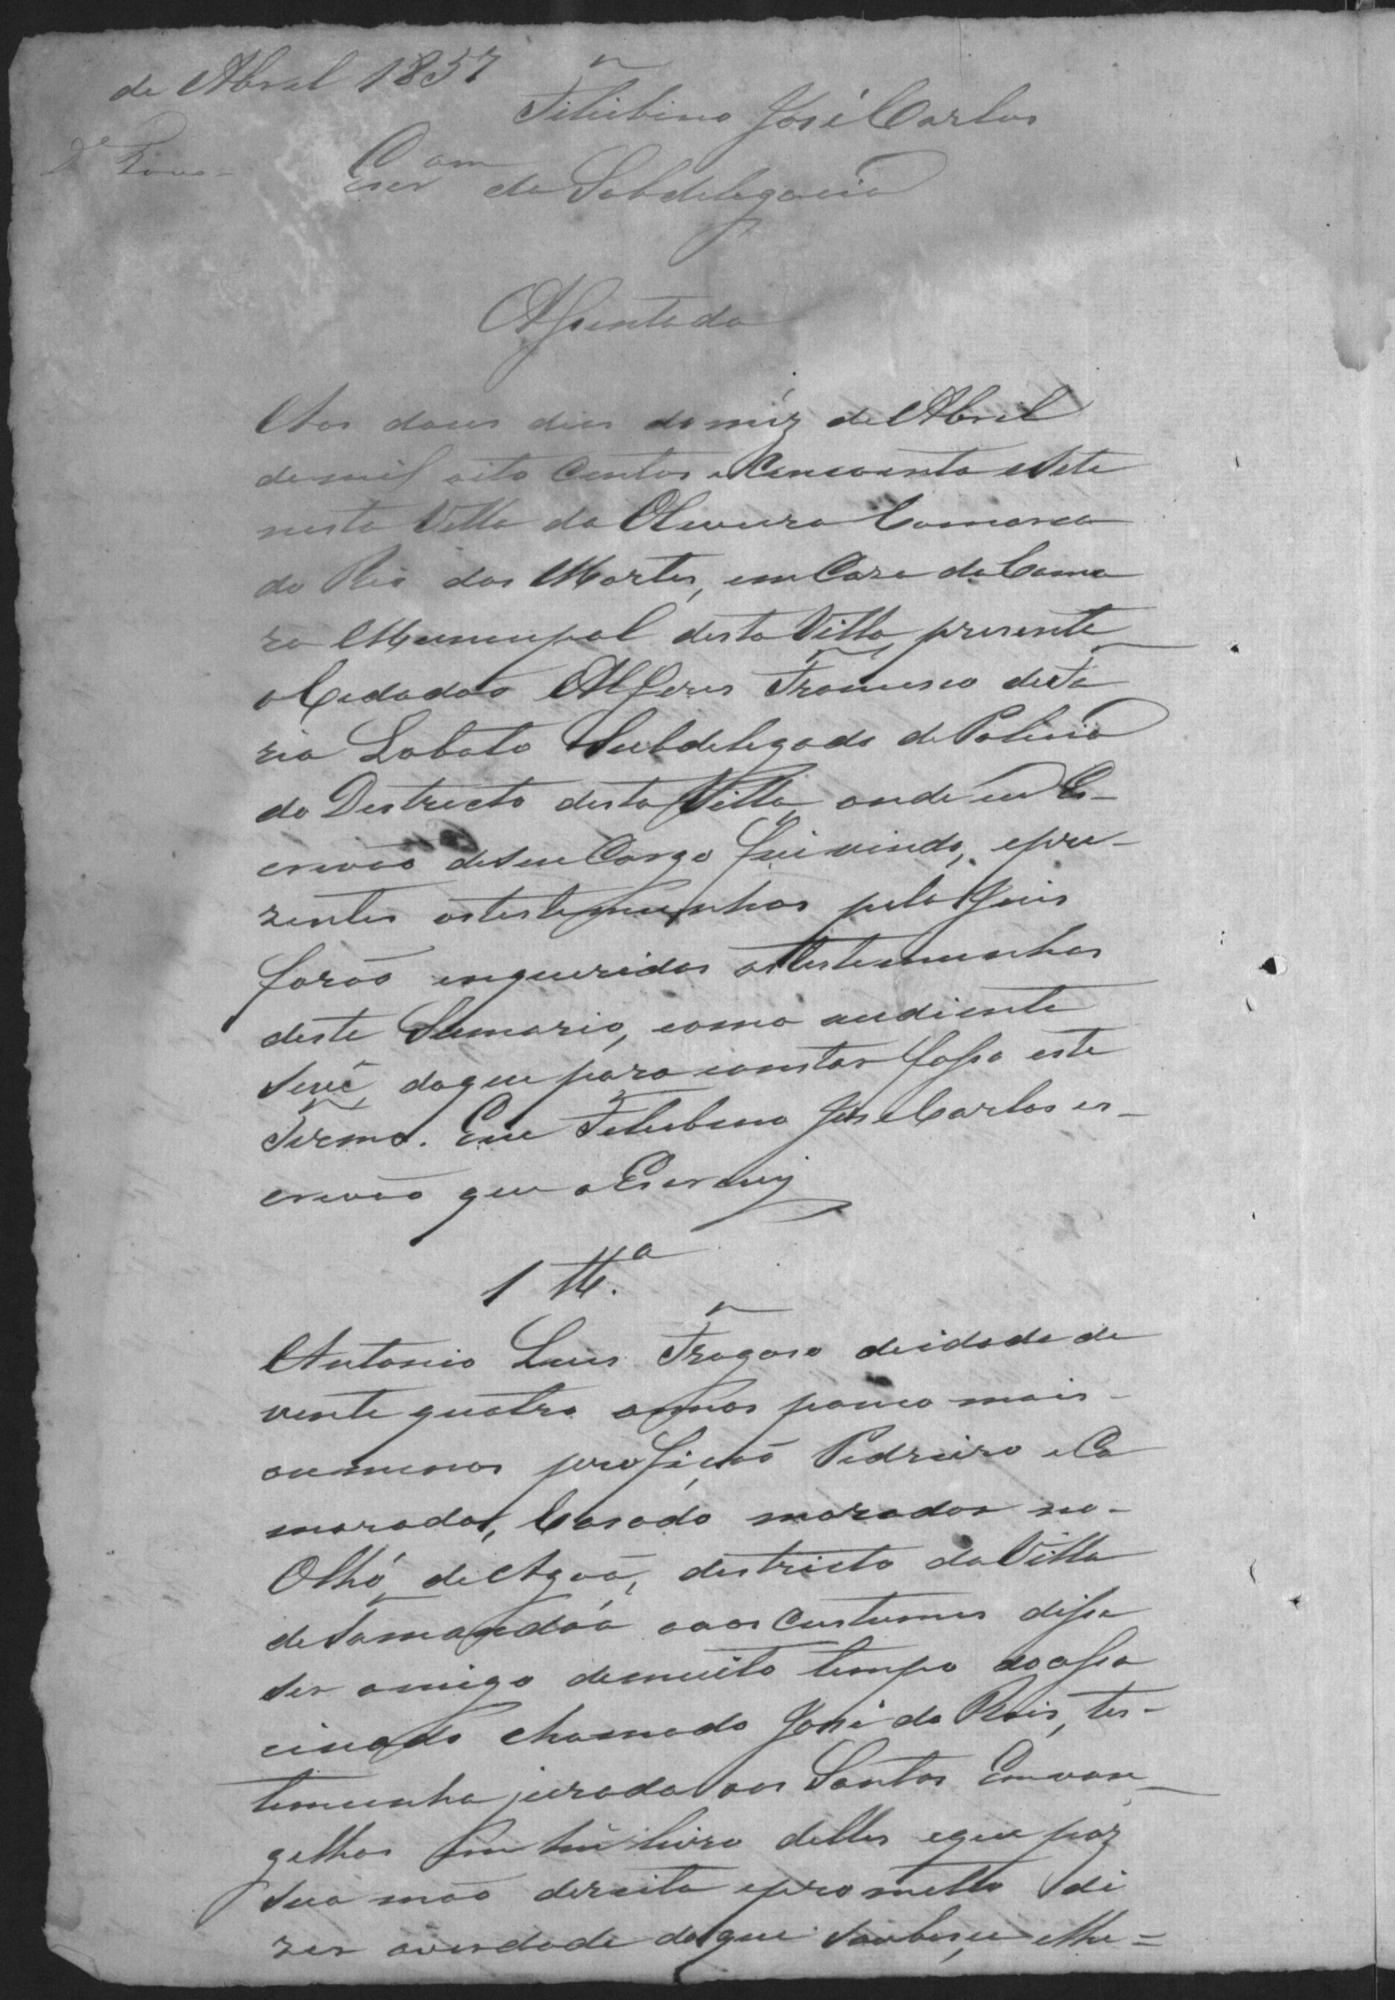 de Abril 1857
Filisbino José Carlos
Escr.am da Subdelegacia
Assentada
Aos dous dias do mêz de Abril
de mil oito Centos e Cencoenta e Sete
nesta Villa da Oliveira Comarca
do Rio das Mortes, em Caza da Cama
ra Municipal desta Villa, presente
o Cidadão Alferes Francisco de Fa
ria Lobato Subdelegado de Policia
do Destricto desta Villa, onde eu Es-
crivão de seu Cargo fui vindo, e pre-
zentes as testemunhas pelo qual
forão enqueridas as testemunhas
deste Sumario, como audiente
se vê, do que para constar fasso este
Termo. Eu Filisbino José Carlos es-
crivão que o Escrevy
1 Tt.a
Antonio Luis Fragoso de idade de
vente quatro annos pouco mais
ou menos profição Pedreiro e Ca
marada, Casado morador no
Olho de Agoa, destricto da Villa
de Tamandoá e aos Custumes disse
ser amigo de muito tempo do assa
cinado chamado José do Reis, tes-
temunha jurada aos Santos Emvan
gelhos em hú livro delles e que poz
sua mão dereita e prometto di
zer averdade do que soubesse, e lhe=